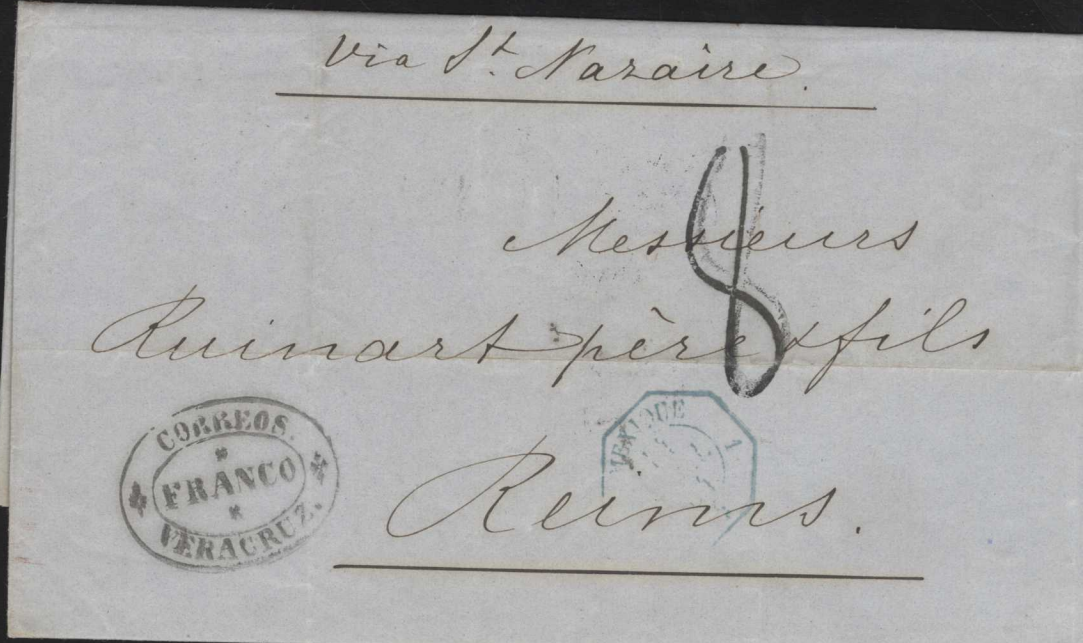 Via St. Nazaire.
8
Messieurs
Ruinart père & fils
Reims.
CORREOS.
FRANCO
VERACRUZ.
MEXIQUE
1